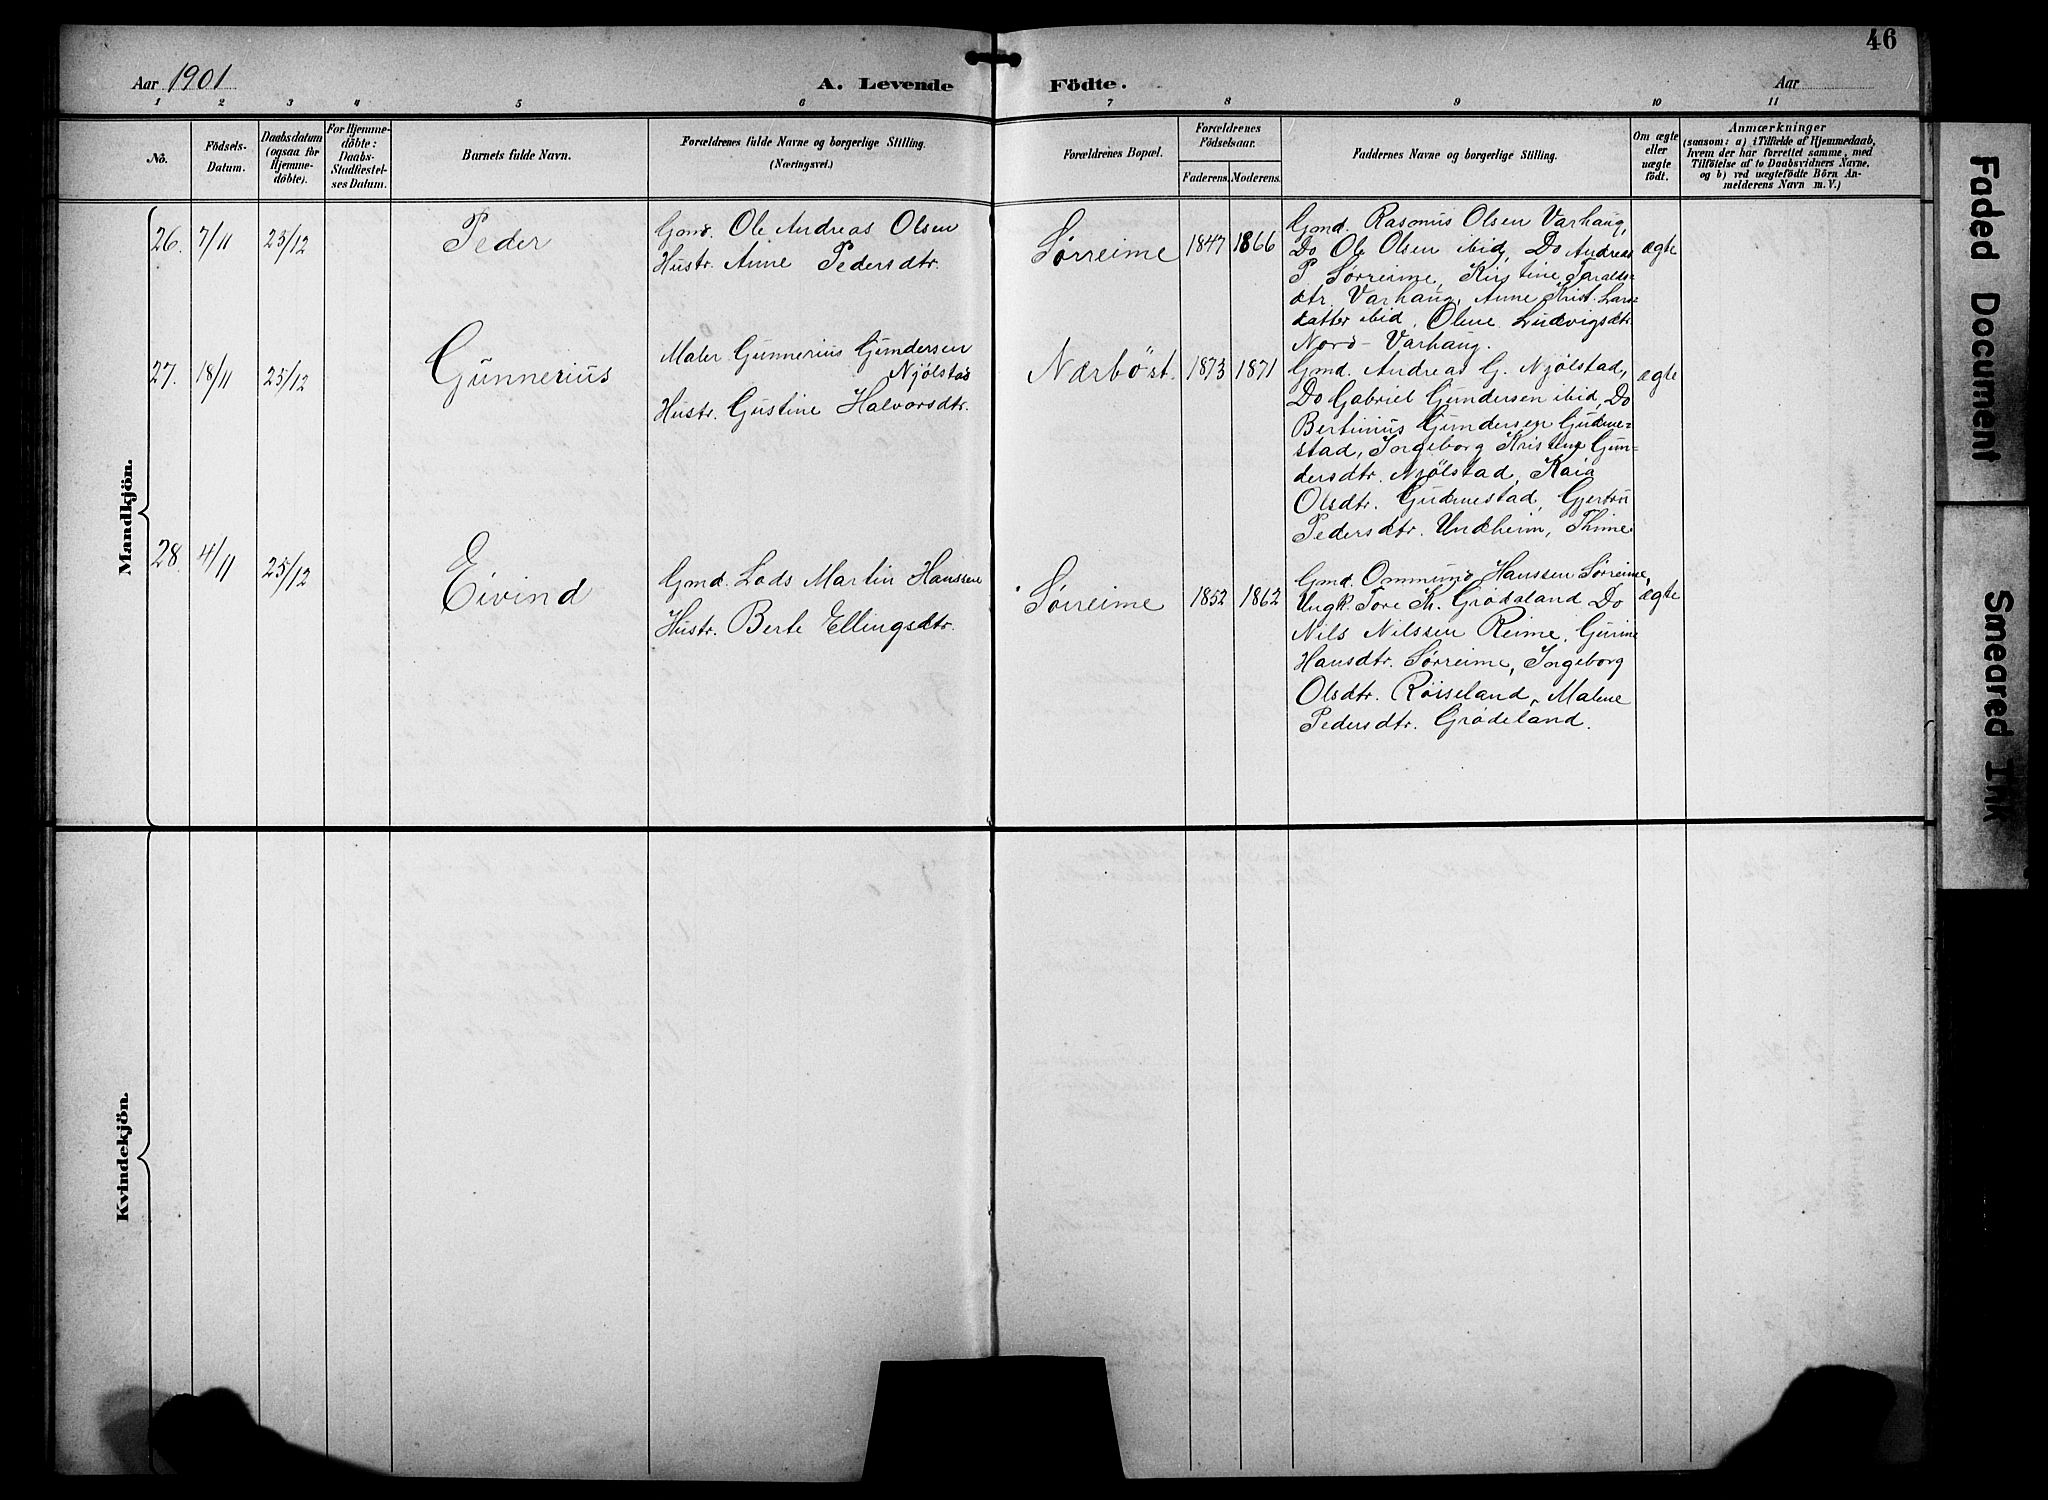 46
Aar 1901
A. Levende Födte.
Aar
1 2 3 4 5 6 7 8 9 10 11
No.
Födsels-
Datum.
Daabsdatum
(ogsaa for
Hjemme-
döbte).
For Hjemme-
döbte:
Daabs-
Stadfæstel-
ses Datum.
Barnets fulde Navn.
Forældrenes fulde Navne og borgerlige Stilling.
(Næringsvei.)
Forældrenes Bopæl.
Forældrenes
Födselsaar.
Faderens. Moderens.
Faddernes Navne og borgerlige Stilling.
Om ægte
eller
uægte
født.
Anmærkninger
(saasom: a) i Tilfælde af Hjemmedaab,
hvem der har forrettet samme, med
Tilföielse af to Daabsvidners Navne,
og b) ved uægtefödte Börn An-
melderens Navn m. V.)
Mandkjön.
26. 7/11 23/12 Peder
Gmd. Ole Andreas Olsen
Hustr. Anne Pedersdtr.
Sørreime 1847 1866
Gmd. Rasmus Olsen Varhaug,
Do Ole Olsen ibid, Do Andreas
P. Sørreime, Kirstine Taralds-
dtr. Varhaug, Anne Krist. Lars-
datter ibid, Olene Ludvigsdtr.
Nord-Varhaug.
ægte
27. 18/11 25/12 Gunnerius
Maler Gunnerius Gundersen
Njølstad
Hustr. Gustine Halvorsdtr.
Nærböst. 1873 1871
Gmd. Andreas G. Njølstad,
Do Gabriel Gundersen ibid, Do
Bertinius Gundersen Gudme-
stad, Ingeborg Kristine Gun-
dersdtr. Njölstad, Kaia
Olsdtr. Gudmestad, Gjertru
Pedersdtr. Undheim, Thime
ægte
28. 4/11 25/12 Eivind
Gmd. Lads Martin Hanssen
Hustr. Berte Ellingsdtr.
Sørreime 1852 1862
Gmd. Ommund Hanssen Sørreime,
Ungk. Tore K. Grødeland Do
Nils Nilssen Reime, Gurine
Hansdtr. Sørreime, Ingeborg
Olsdtr. Røiseland, Malene
Pedersdtr. Grødeland.
ægte
Kvindekjön.
Faded Document
Smeared Ink